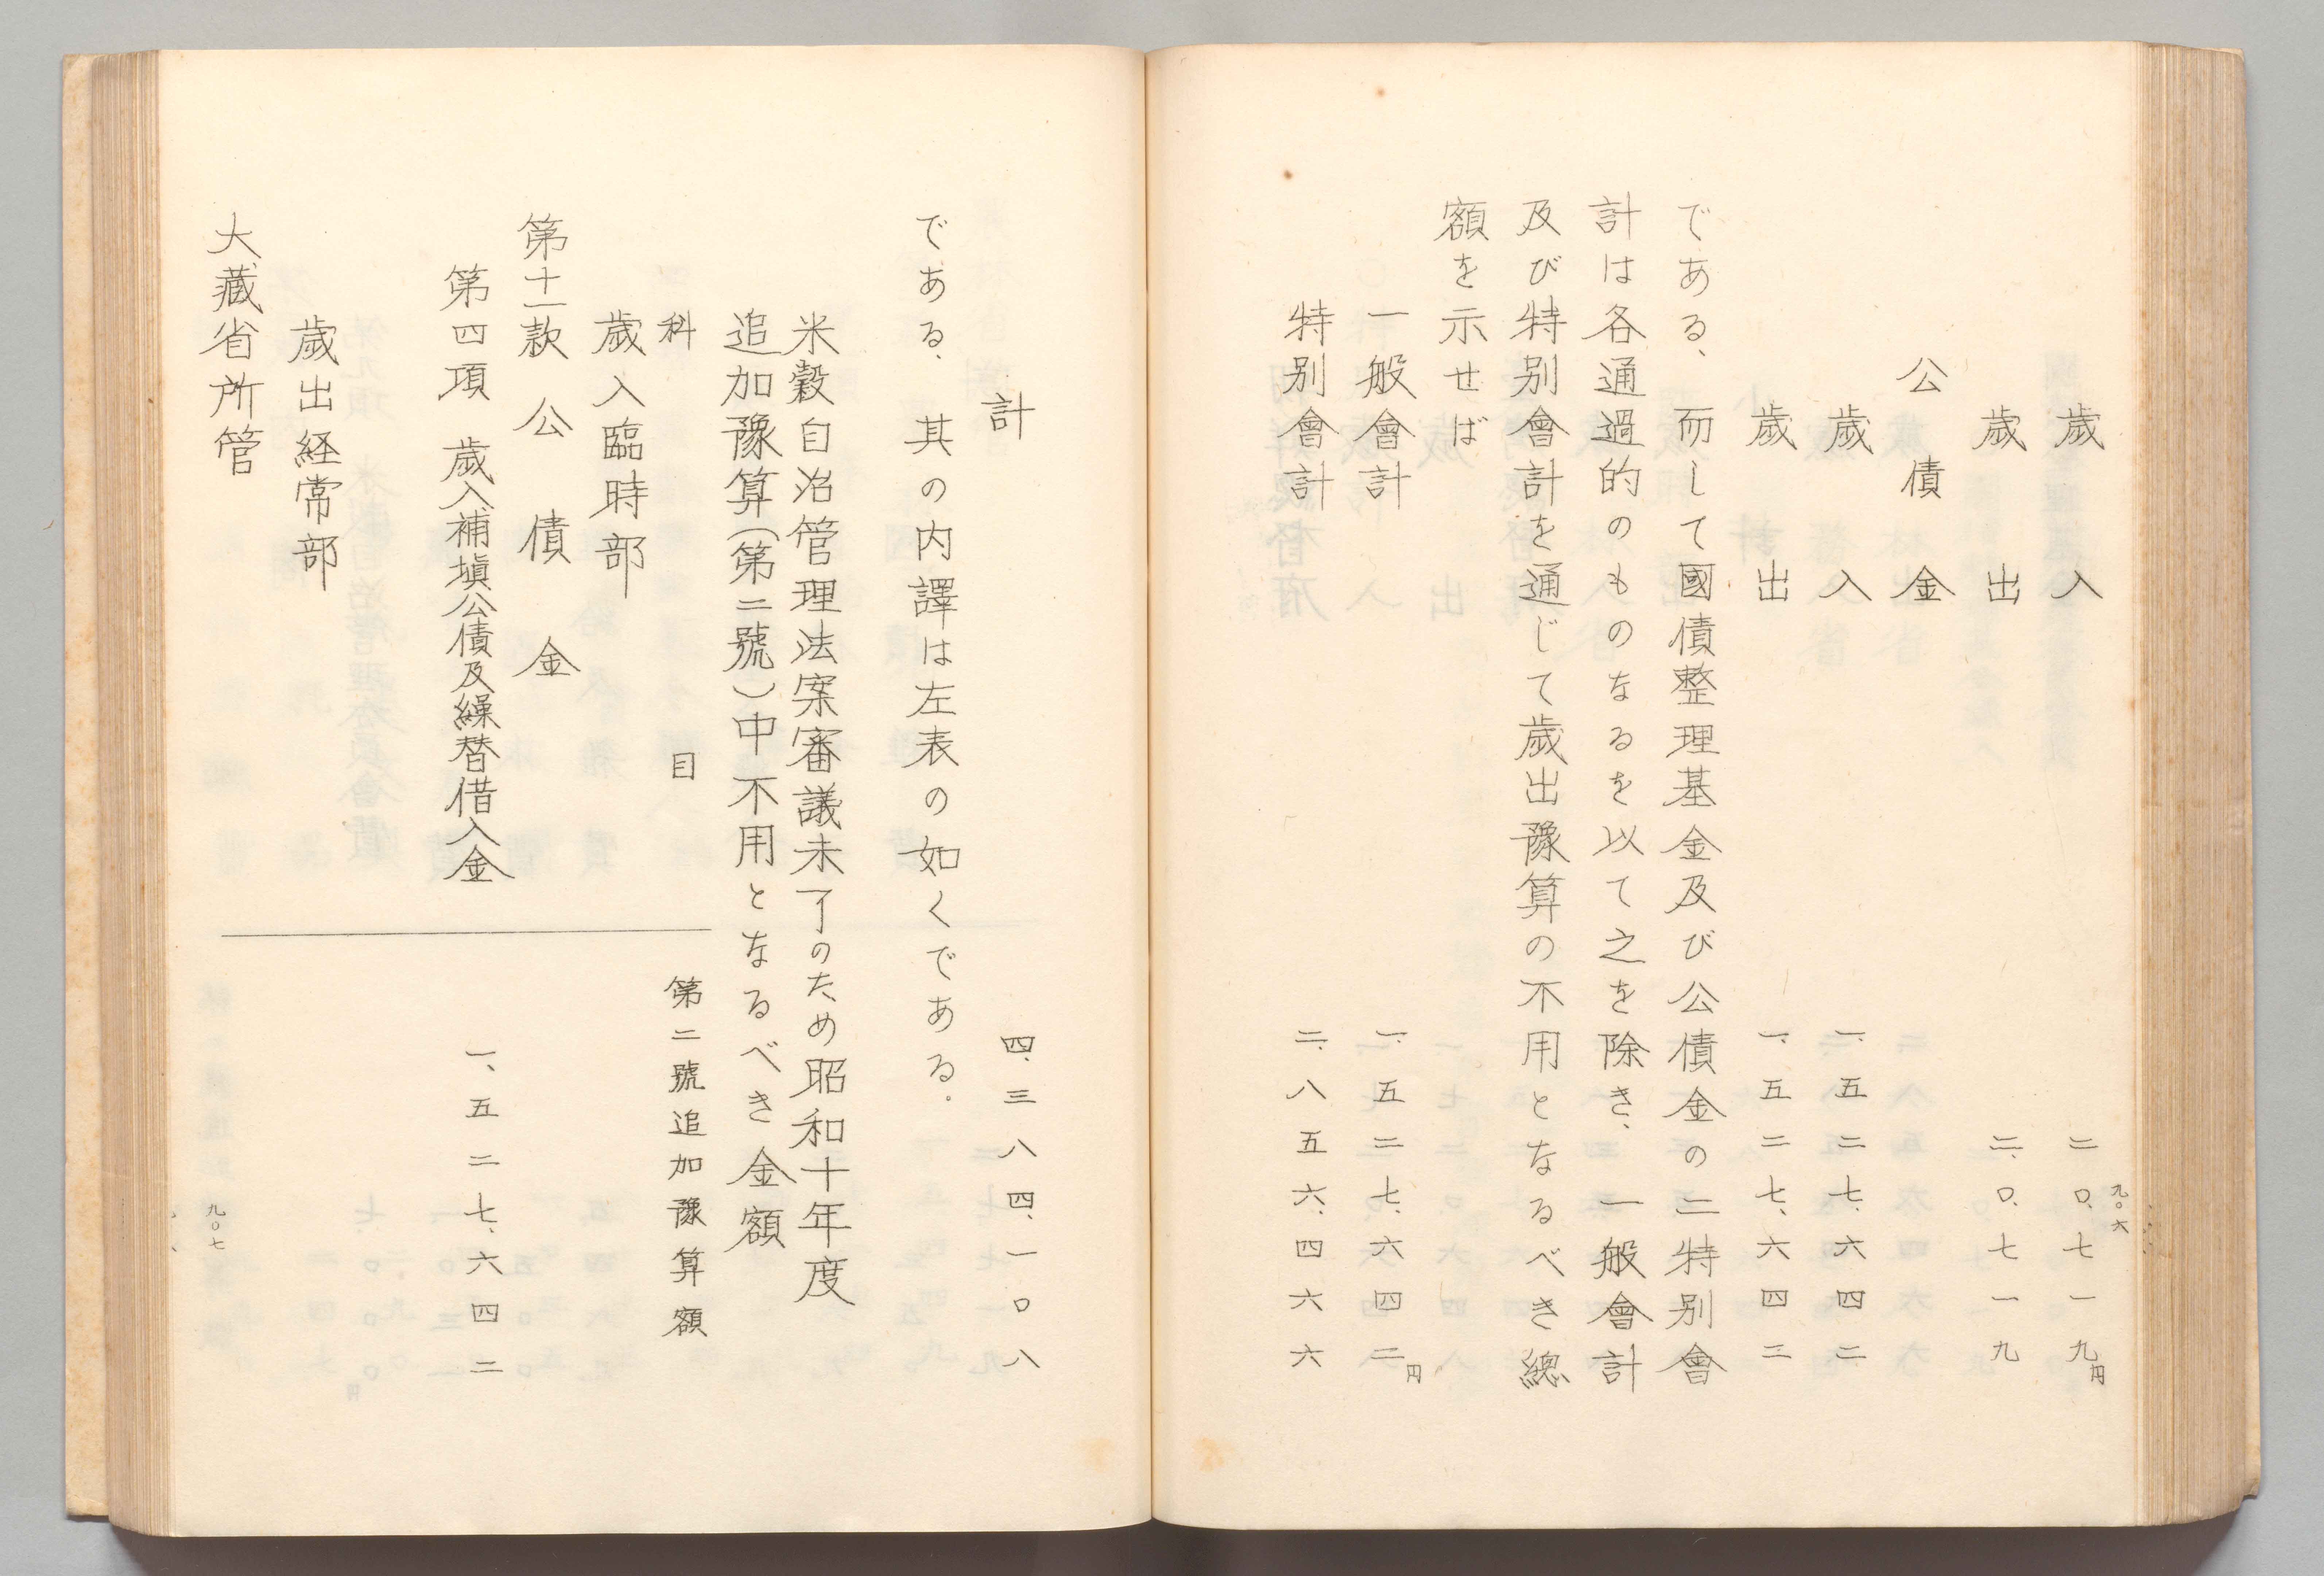 九〇六
歳入　二〇、七一九円
歳出　二〇、七一九
公債金
歳入　一、五二七、六四二
歳出　一、五二七、六四二
である、而して國債整理基金及び公債金の二特別會
計は各通過的のものなるを以て之を除き、一般會計
及び特別會計を通じて歳出豫算の不用となるべき總
額を示せば
一般會計　一、五二七、六四二円
特別會計　二、八五六、四六六
計　四、三八四、一〇八
である、其の内譯は左表の如くである。
米穀自治管理法案審議未了のため昭和十年度
追加豫算(第二號)中不用となるべき金額
科目　第二號追加豫算額
歳入臨時部
第十一款　公債金
第四項　歳入補塡公債及繰替借入金　一、五二七、六四二
歳出経常部
大藏省所管
九〇七